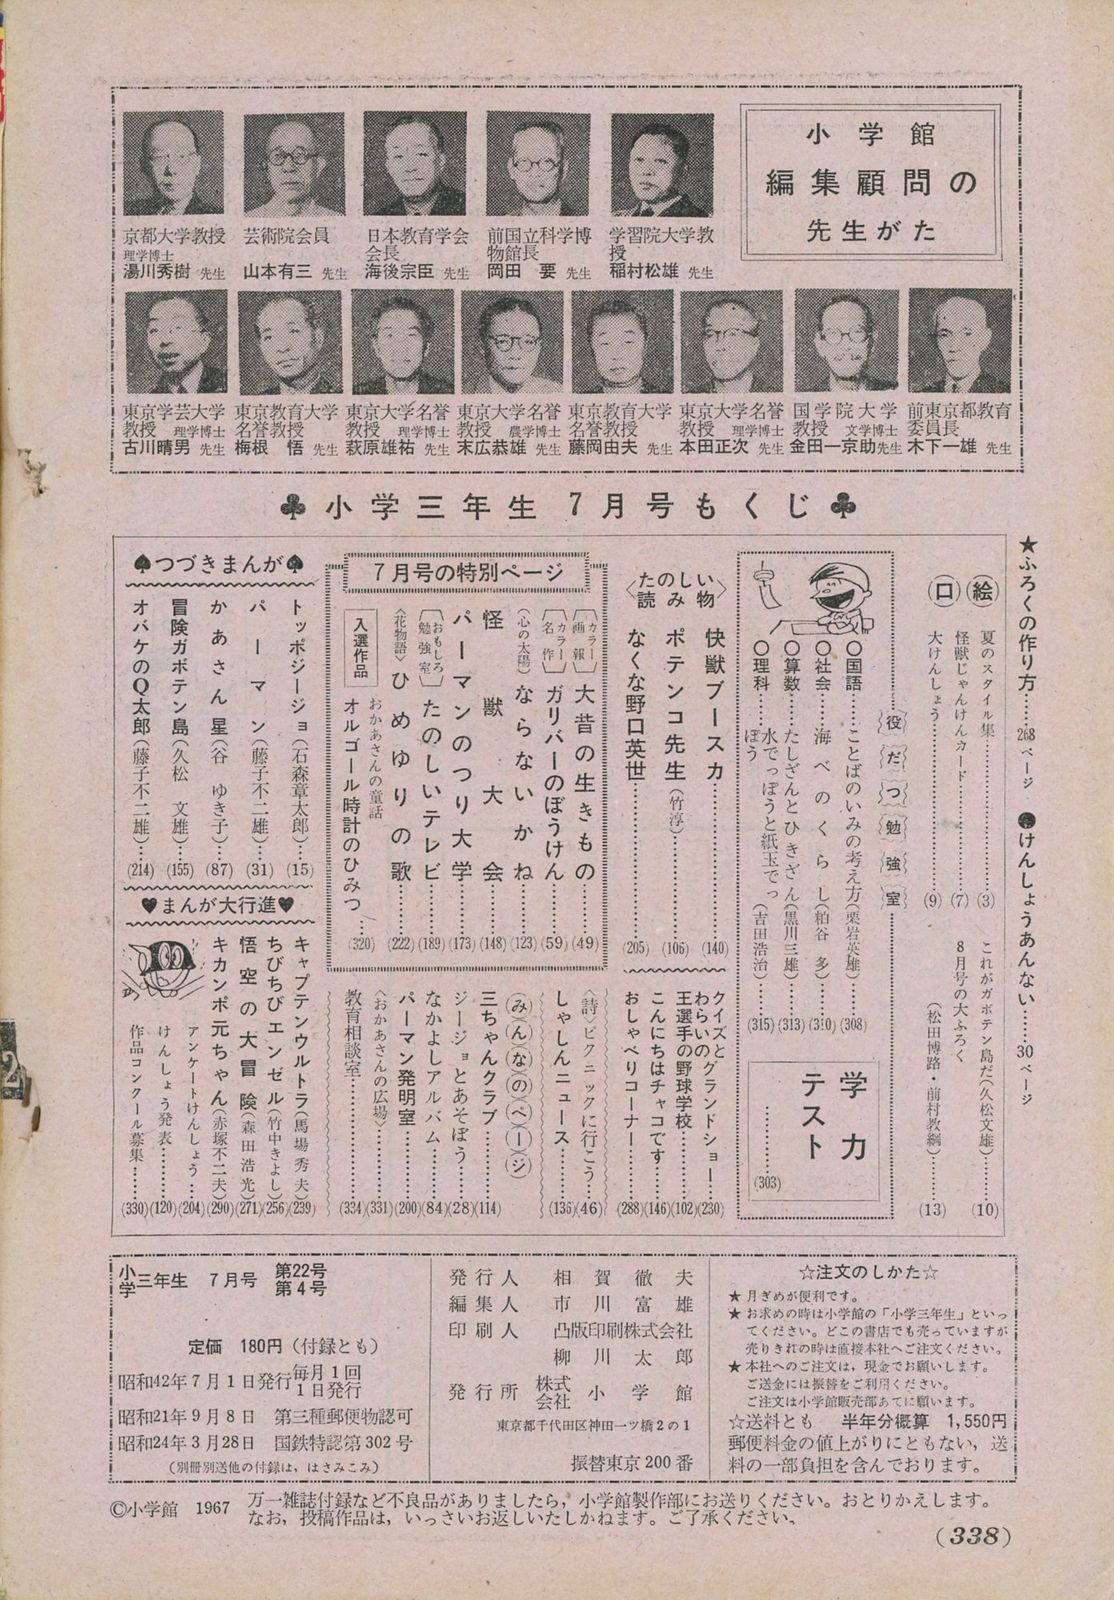 小学館
編集顧問の
先生がた
京都大学教授
理学博士
湯川秀樹 先生
芸術院会員
山本有三 先生
日本教育学会
会長
海後宗臣 先生
前国立科学博
物館長
岡田 要 先生
学習院大学教
授
稲村松雄 先生
東京学芸大学
教授 理学博士
古川晴男 先生
東京教育大学
名誉教授
梅根 悟 先生
東京大学名誉
教授 理学博士
萩原雄祐 先生
東京大学名誉
教授 農学博士
末広恭雄 先生
東京教育大学
名誉教授
藤岡由夫 先生
東京大学名誉
教授 理学博士
本田正次 先生
国学院大学
教授 文学博士
金田一京助 先生
前東京都教育
委員長
木下一雄 先生
♣小学三年生 7月号もくじ♣
★ふろくの作り方……268ページ
●けんしょうあんない……30ページ
口絵
夏のスタイル集……(3)
怪獣じゃんけんカード……(7)
大けんしょう……(9)
これがガボテン島だ(久松文雄)……(10)
8月号の大ふろく
(松田博路・前村教綱)……(13)
役だつ勉強室
○国語……ことばのいみの考え方(栗岩英雄)……(308)
○社会……海べのくらし(粕谷 多)……(310)
○算数……たしざんとひきざん(黒川三雄)……(313)
○理科……水でっぽうと紙玉でっ
ぽう(吉田浩治)……(315)
学力
テスト
……(303)
〈たのしい
読み物〉
快獣ブースカ……(140)
ポテンコ先生(竹淳)……(106)
なくな野口英世……(205)
クイズと
わらいのグランドショー……(230)
王選手の野球学校……(102)
こんにちはチャコです……(146)
おしゃべりコーナー……(288)
7月号の特別ページ
〔カラー画報〕大昔の生きもの……(49)
〔カラー名作〕ガリバーのぼうけん……(59)
(心の太陽)ならないかね……(123)
怪獣大会……(148)
パーマンのつり大学……(173)
〔おもしろ勉強室〕たのしいテレビ……(189)
〈花物語〉ひめゆりの歌……(222)
入選作品
おかあさんの童話
オルゴール時計のひみつ……(320)
〈詩〉ピクニックに行こう……(46)
しゃしんニュース……(136)
(み)(ん)(な)(の)(ペ)(ー)(ジ)
三ちゃんクラブ……(114)
ジージョとあそぼう……(28)
なかよしアルバム……(84)
パーマン発明室……(200)
〈おかあさんの広場〉……(331)
教育相談室……(334)
♠つづきまんが♠
トッポジージョ(石森章太郎)……(15)
パーマン(藤子不二雄)……(31)
かあさん星(谷 ゆき子)……(87)
冒険ガボテン島(久松 文雄)……(155)
オバケのQ太郎(藤子不二雄)……(214)
♥まんが大行進♥
キャプテンウルトラ(馬場秀夫)(239)
ちびちびエンゼル(竹中きよし)(256)
悟空の大冒険(森田浩光)(271)
キカンポ元ちゃん(赤塚不二夫)(290)
アンケートけんしょう……(204)
けんしょう発表……(120)
作品コンクール募集……(330)
小学三年生 7月号 第22号
第4号
定価 180円(付録とも)
昭和42年7月1日発行 毎月1回
1日発行
昭和21年9月8日 第三種郵便物認可
昭和24年3月28日 国鉄特認第302号
(別冊別送他の付録は，はさみこみ)
発行人 相賀徹夫
編集人 市川富雄
印刷人 凸版印刷株式会社
柳川太郎
発行所 株式会社 小学館
東京都千代田区神田一ツ橋2の1
振替東京200番
☆注文のしかた☆
★月ぎめが便利です。
★お求めの時は小学館の「小学三年生」といっ
てください。どこの書店でも売っていますが
売りきれの時は直接本社へご注文ください。
★本社へのご注文は，現金でお願いします。
ご送金には振替をご利用ください。
ご注文は小学館販売部あてに願います。
☆送料とも 半年分概算 1,550円
郵便料金の値上がりにともない，送
料の一部負担を含んでおります。
©小学館 1967
万一雑誌付録など不良品がありましたら，小学館製作部にお送りください。おとりかえします。
なお，投稿作品は，いっさいお返しいたしかねます。ご了承ください。
(338)